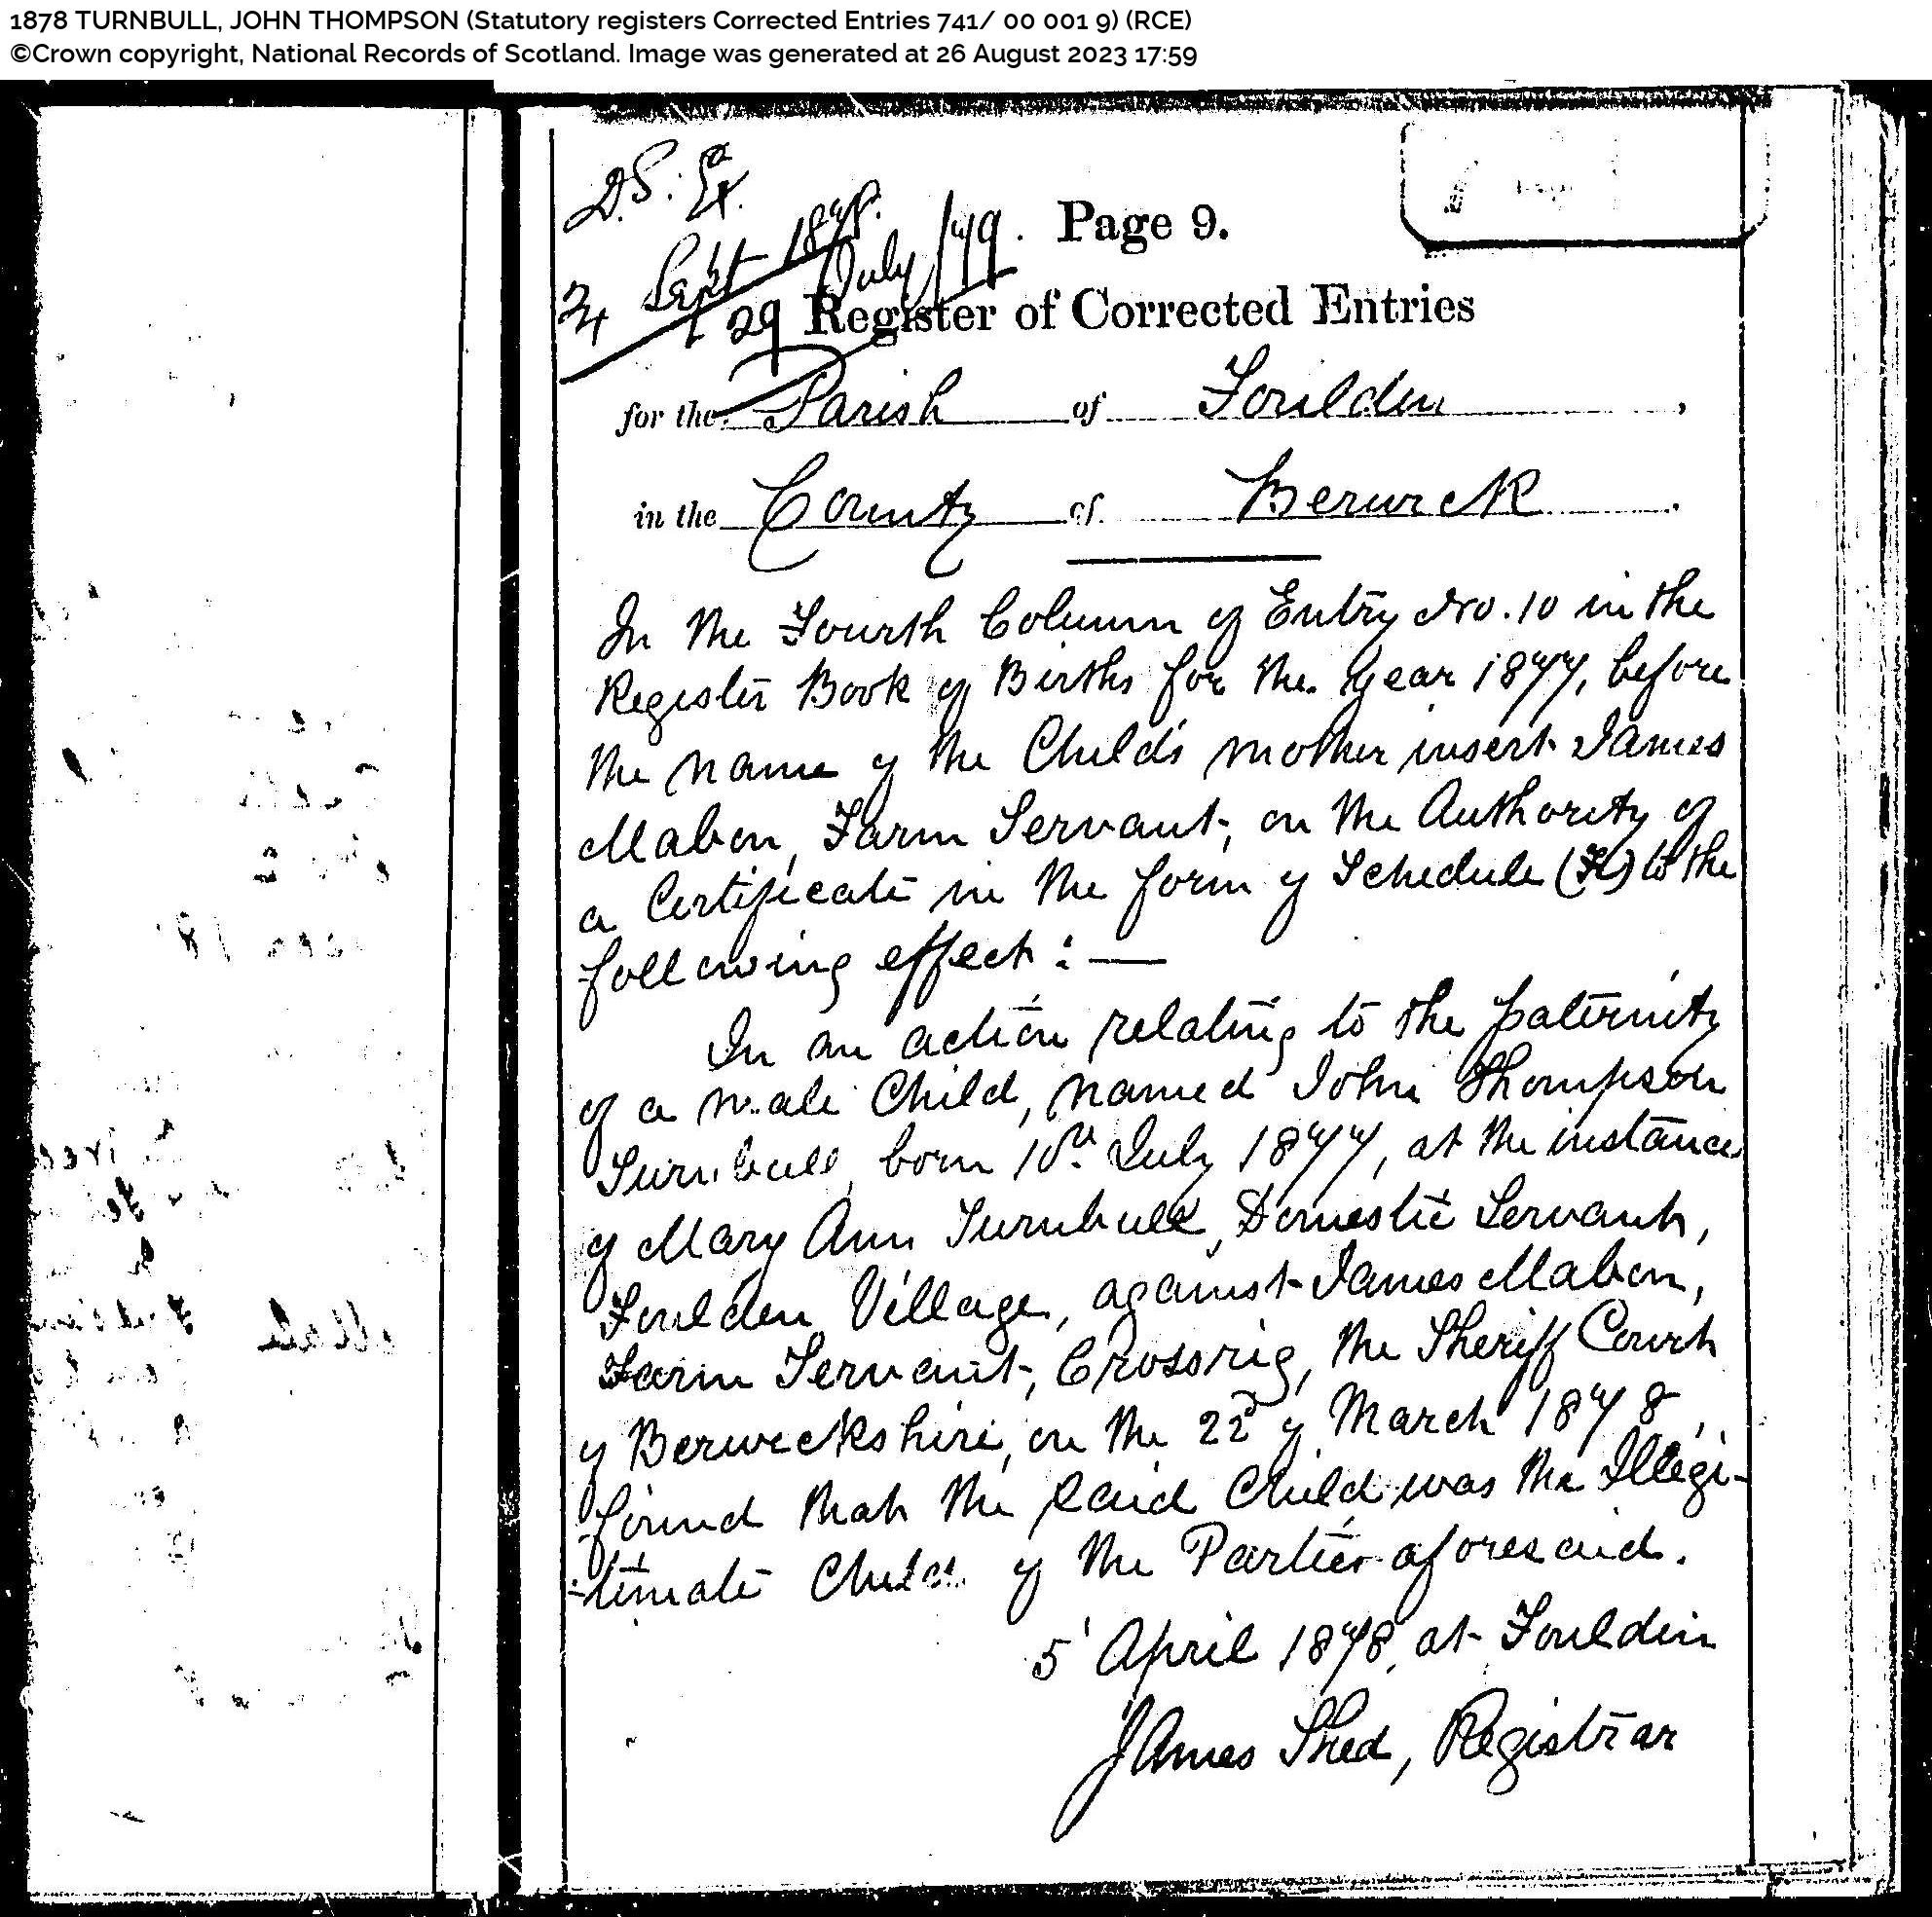 1878 TURNBULL, JOHN THOMPSON (Statutory registers Corrected Entries 741/ 00 001 9) (RCE)
©Crown copyright, National Records of Scotland. Image was generated at 26 August 2023 17:59
D.S. Ex.
Sept 1878.
29 July /79.
Page 9.
Register of Corrected Entries
for the Parish of Foulden,
in the County of Berwick.
In the Fourth Column of Entry No. 10 in the
Register Book of Births for the Year 1877, before
the name of the Child's mother insert James
Mabon, Farm Servant, on the Authority of
a Certificate in the form of Schedule (F) to the
following effect:—
In an action relating to the paternity
of a male Child, named John Thompson
Turnbull, born 10th July 1877, at the instance
of Mary Ann Turnbull, Domestic Servant,
Foulden Village, against James Mabon,
Farm Servant, Crossrig, the Sheriff Court
of Berwickshire, on the 22d of March 1878,
found that the said Child was the Illegi-
-timate Child of the Parties aforesaid.
5 April 1878, at Foulden
James Shed, Registrar